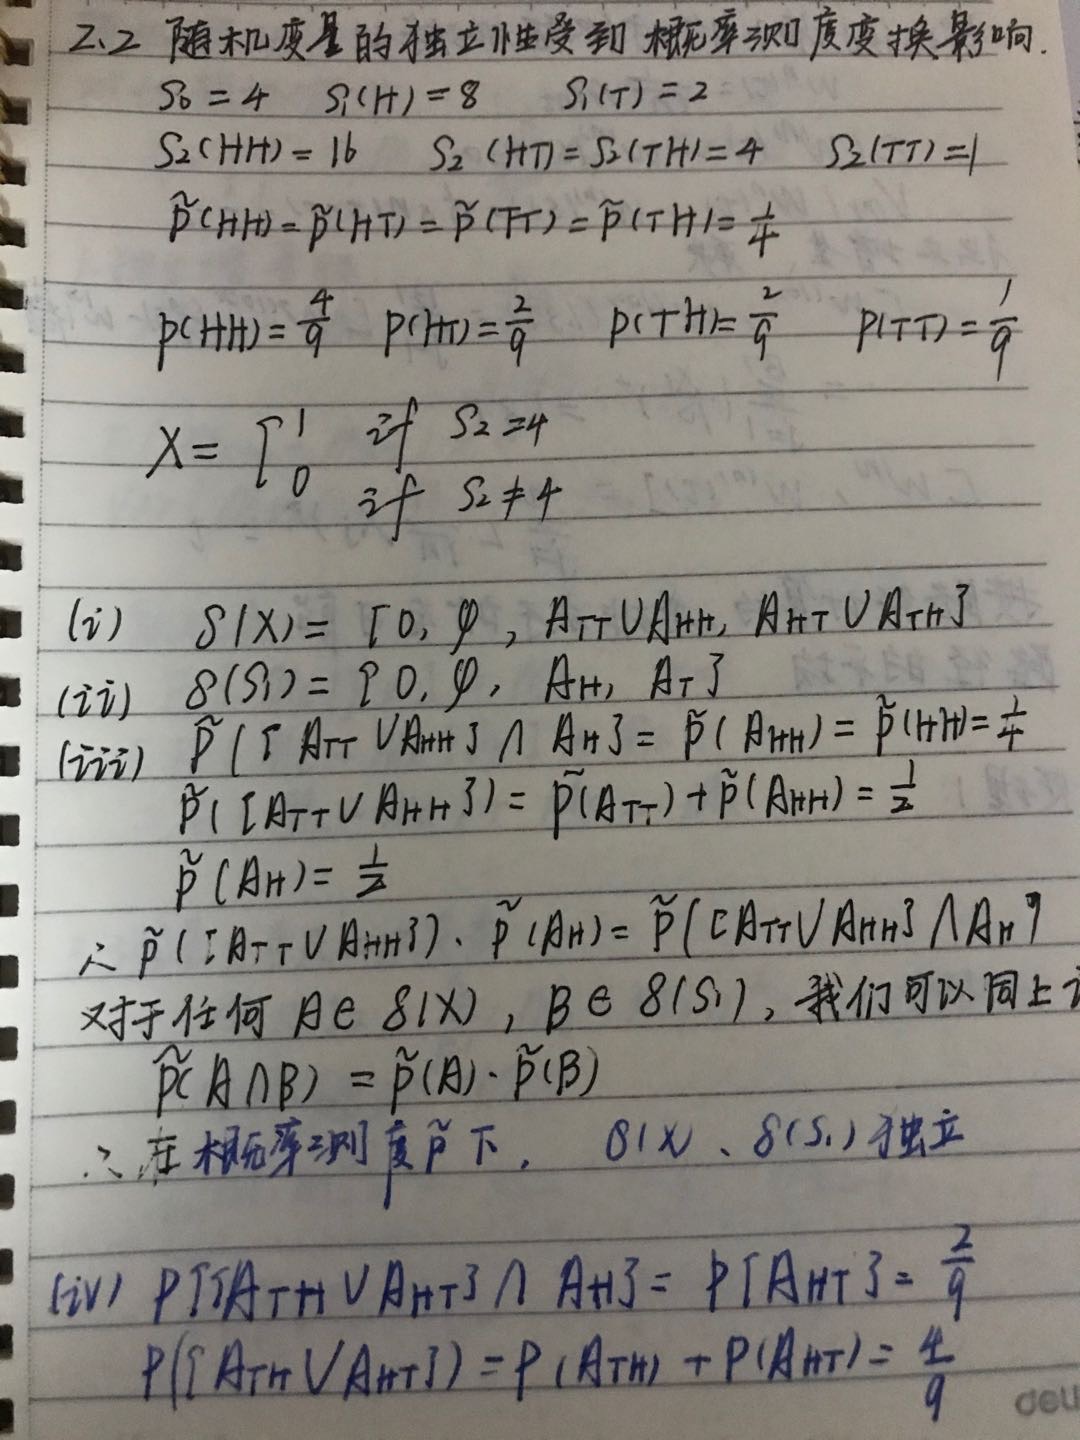 2.2 随机变量的独立性受到概率测度变换影响.
S₀ = 4 S₁(H) = 8 S₁(T) = 2
S₂(HH) = 16 S₂(HT) = S₂(TH) = 4 S₂(TT) = 1
P̃(HH) = P̃(HT) = P̃(TT) = P̃(TH) = 1/4
P(HH) = 4/9 P(HT) = 2/9 P(TH) = 2/9 P(TT) = 1/9
X = { 1 if S₂ = 4
0 if S₂ ≠ 4
(i) δ(X) = {0, φ, A_TT ∪ A_HH, A_HT ∪ A_TH}
(ii) δ(S₁) = {0, φ, A_H, A_T}
(iii) P̃({A_TT ∪ A_HH} ∩ A_H} = P̃(A_HH) = P̃(HH) = 1/4
P̃({A_TT ∪ A_HH}) = P̃(A_TT) + P̃(A_HH) = 1/2
P̃(A_H) = 1/2
∴ P̃({A_TT ∪ A_HH}) · P̃(A_H) = P̃({A_TT ∪ A_HH} ∩ A_H}
对于任何 A ∈ δ(X), B ∈ δ(S₁), 我们可以同上
P̃(A ∩ B) = P̃(A) · P̃(B)
∴ 在概率测度 P̃ 下, δ(X)、δ(S₁) 独立
(iv) P{{A_TH ∪ A_HT} ∩ A_H} = P{A_HT} = 2/9
P({A_TH ∪ A_HT}) = P(A_TH) + P(A_HT) = 4/9